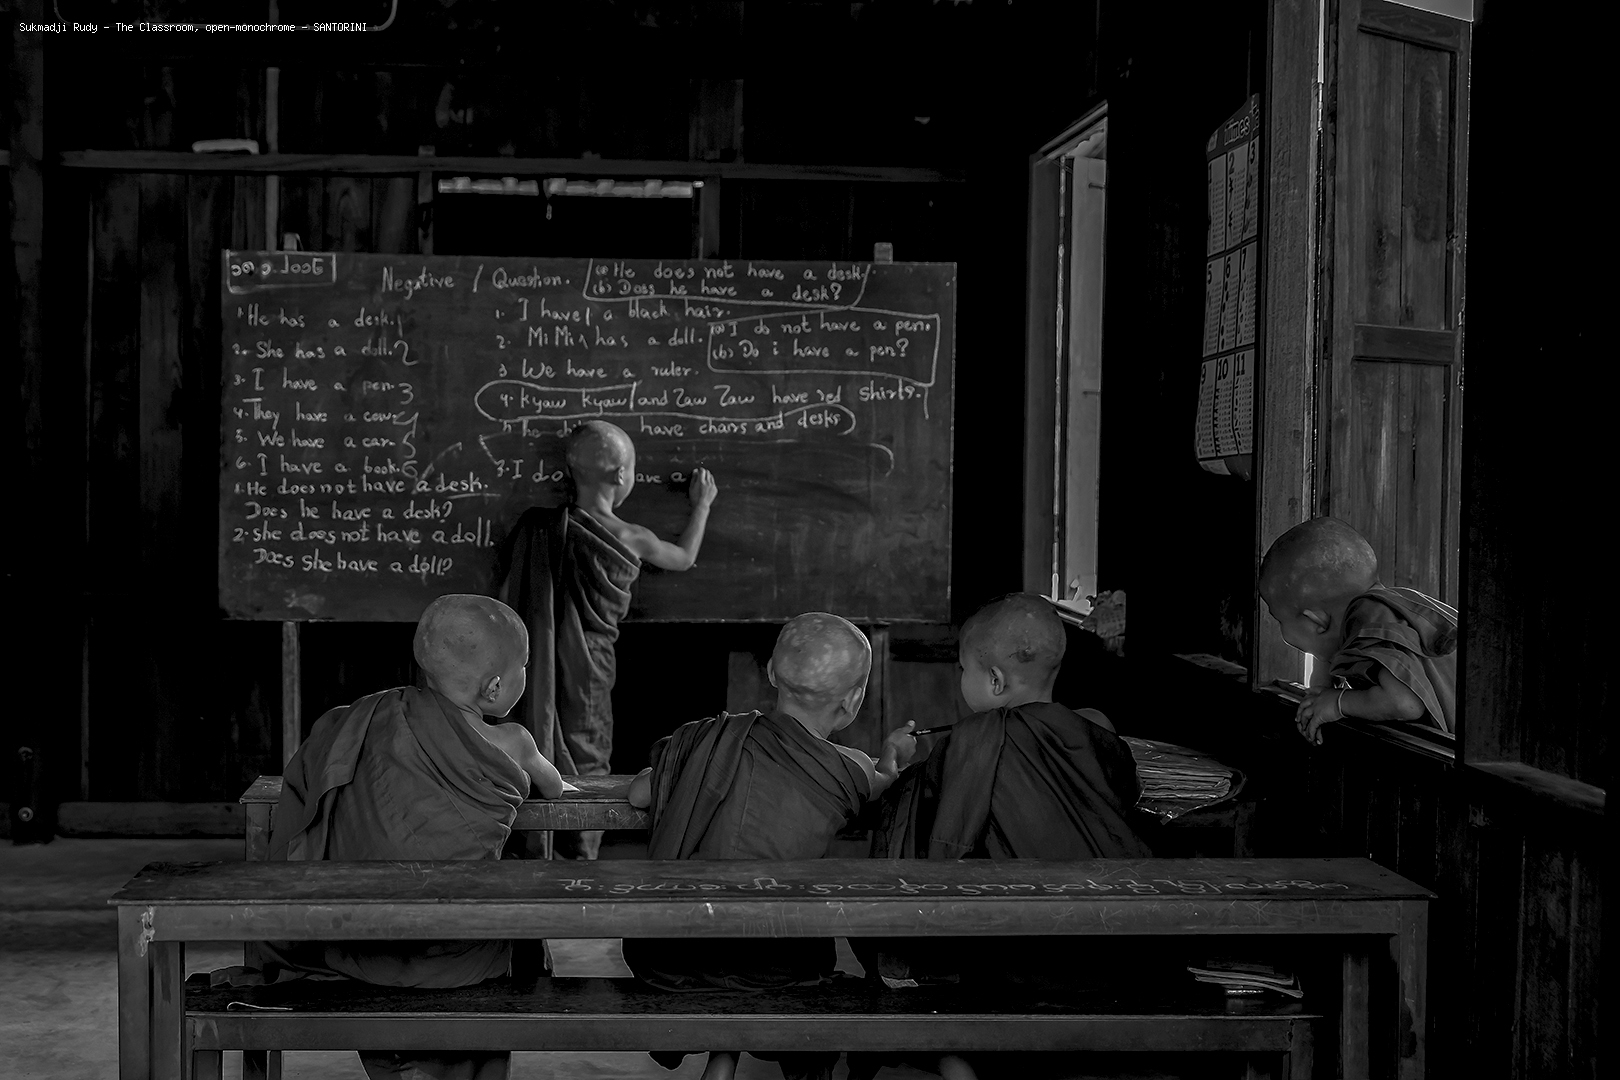 Sukmadji Rudy – The Classroom, open-monochrome – SANTORINI
Negative / Question.
(a) He does not have a desk.
(b) Does he have a desk?
1. He has a desk. 1
2. She has a doll. 2
3. I have a pen. 3
4. They have a cow. 4
5. We have a car. 5
6. I have a book. 6
1. He does not have a desk.
Does he have a desk?
2. she does not have a doll.
Does she have a doll?
1. I have / a black hair.
2. Mi Mi has a doll.
3 We have a ruler.
4. Kyaw Kyaw / and Zaw Zaw have red shirts.
have chairs and desks
(a) I do not have a pen.
(b) Do i have a pen?
3. I do ave a
Times
2 3
5 6 7
9 10 11